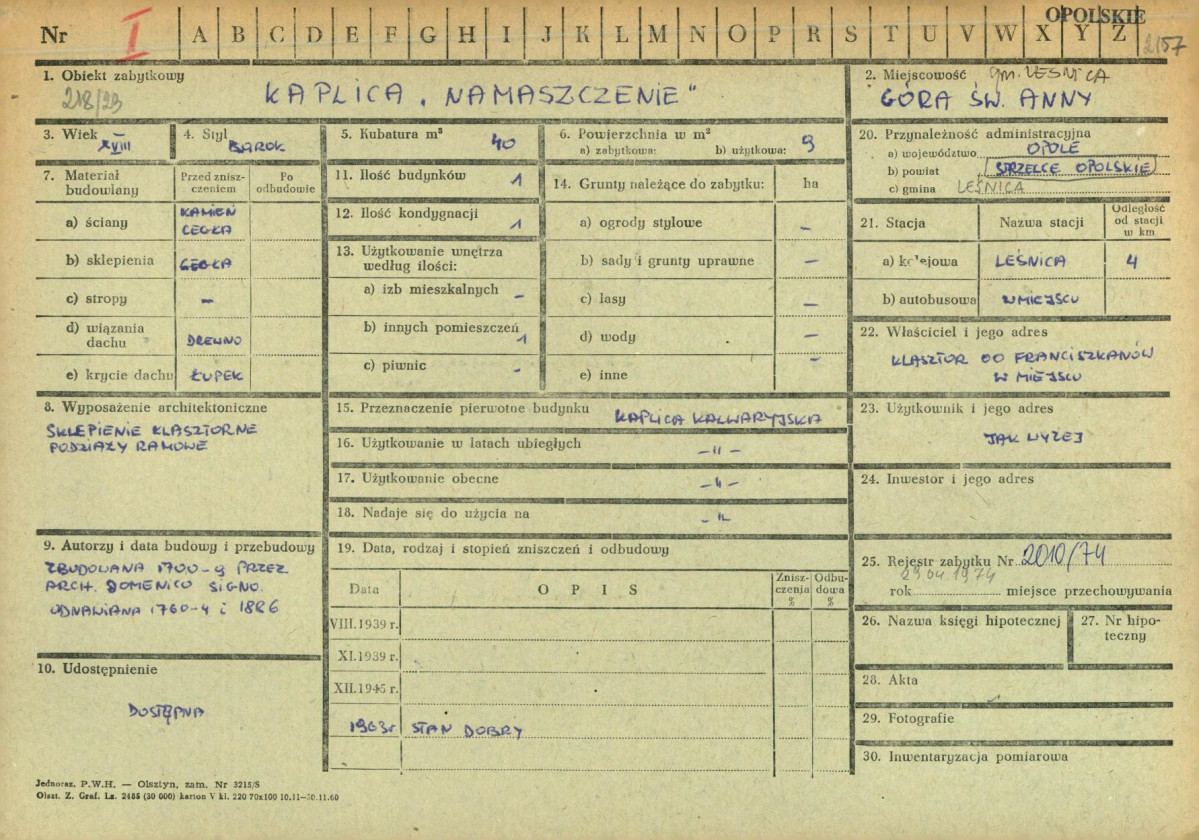 OPOLSKIE
Nr I A B C D E F G H I J K L M N O P R S T U V W X Y Z 2157
1. Obiekt zabytkowy
218/23
KAPLICA „NAMASZCZENIE"
2. Miejscowość gm. LEŚNICA
GÓRA ŚW. ANNY
3. Wiek
XVIII
4. Styl
BAROK
5. Kubatura m³
40
6. Powierzchnia w m²
a) zabytkowa: b) użytkowa: 9
7. Materiał budowlany
Przed zniszczeniem
Po odbudowie
a) ściany KAMIEŃ
CEGŁA
b) sklepienia CEGŁA
c) stropy –
d) wiązania
dachu DREWNO
e) krycie dachu ŁUPEK
8. Wyposażenie architektoniczne
SKLEPIENIE KLASZTORNE
PODZIAŁY RAMOWE
9. Autorzy i data budowy i przebudowy
ZBUDOWANA 1700-9 PRZEZ
ARCH. DOMENICO SIGNO.
ODNAWIANA 1760-4 i 1886
10. Udostępnienie
DOSTĘPNA
11. Ilość budynków 1
12. Ilość kondygnacji 1
13. Użytkowanie wnętrza
według ilości:
a) izb mieszkalnych –
b) innych pomieszczeń 1
c) piwnic –
14. Grunty należące do zabytku: ha
a) ogrody stylowe –
b) sady i grunty uprawne –
c) lasy –
d) wody –
e) inne –
15. Przeznaczenie pierwotne budynku KAPLICA KALWARYJSKA
16. Użytkowanie w latach ubiegłych –"–
17. Użytkowanie obecne –"–
18. Nadaje się do użycia na –"
19. Data, rodzaj i stopień zniszczeń i odbudowy
Data OPIS Zniszczenia % Odbudowa %
VIII.1939 r.
XI.1939 r.
XII.1945 r.
1963r STAN DOBRY
20. Przynależność administracyjna
a) województwo OPOLE
b) powiat STRZELCE OPOLSKIE
c) gmina LEŚNICA
21. Stacja Nazwa stacji Odległość od stacji w km
a) kolejowa LEŚNICA 4
b) autobusowa W MIEJSCU
22. Właściciel i jego adres
KLASZTOR OO FRANCISZKANÓW
W MIEJSCU
23. Użytkownik i jego adres
JAK WYŻEJ
24. Inwestor i jego adres
25. Rejestr zabytku Nr 2010/74
29.04.1974
rok miejsce przechowywania
26. Nazwa księgi hipotecznej
27. Nr hipoteczny
28. Akta
29. Fotografie
30. Inwentaryzacja pomiarowa
Jednoraz. P.W.H. — Olsztyn, zam. Nr 3215/S
Olszt. Z. Graf. Lz. 2485 (30 000) karton V kl. 220 70x100 10.11—30.11.60